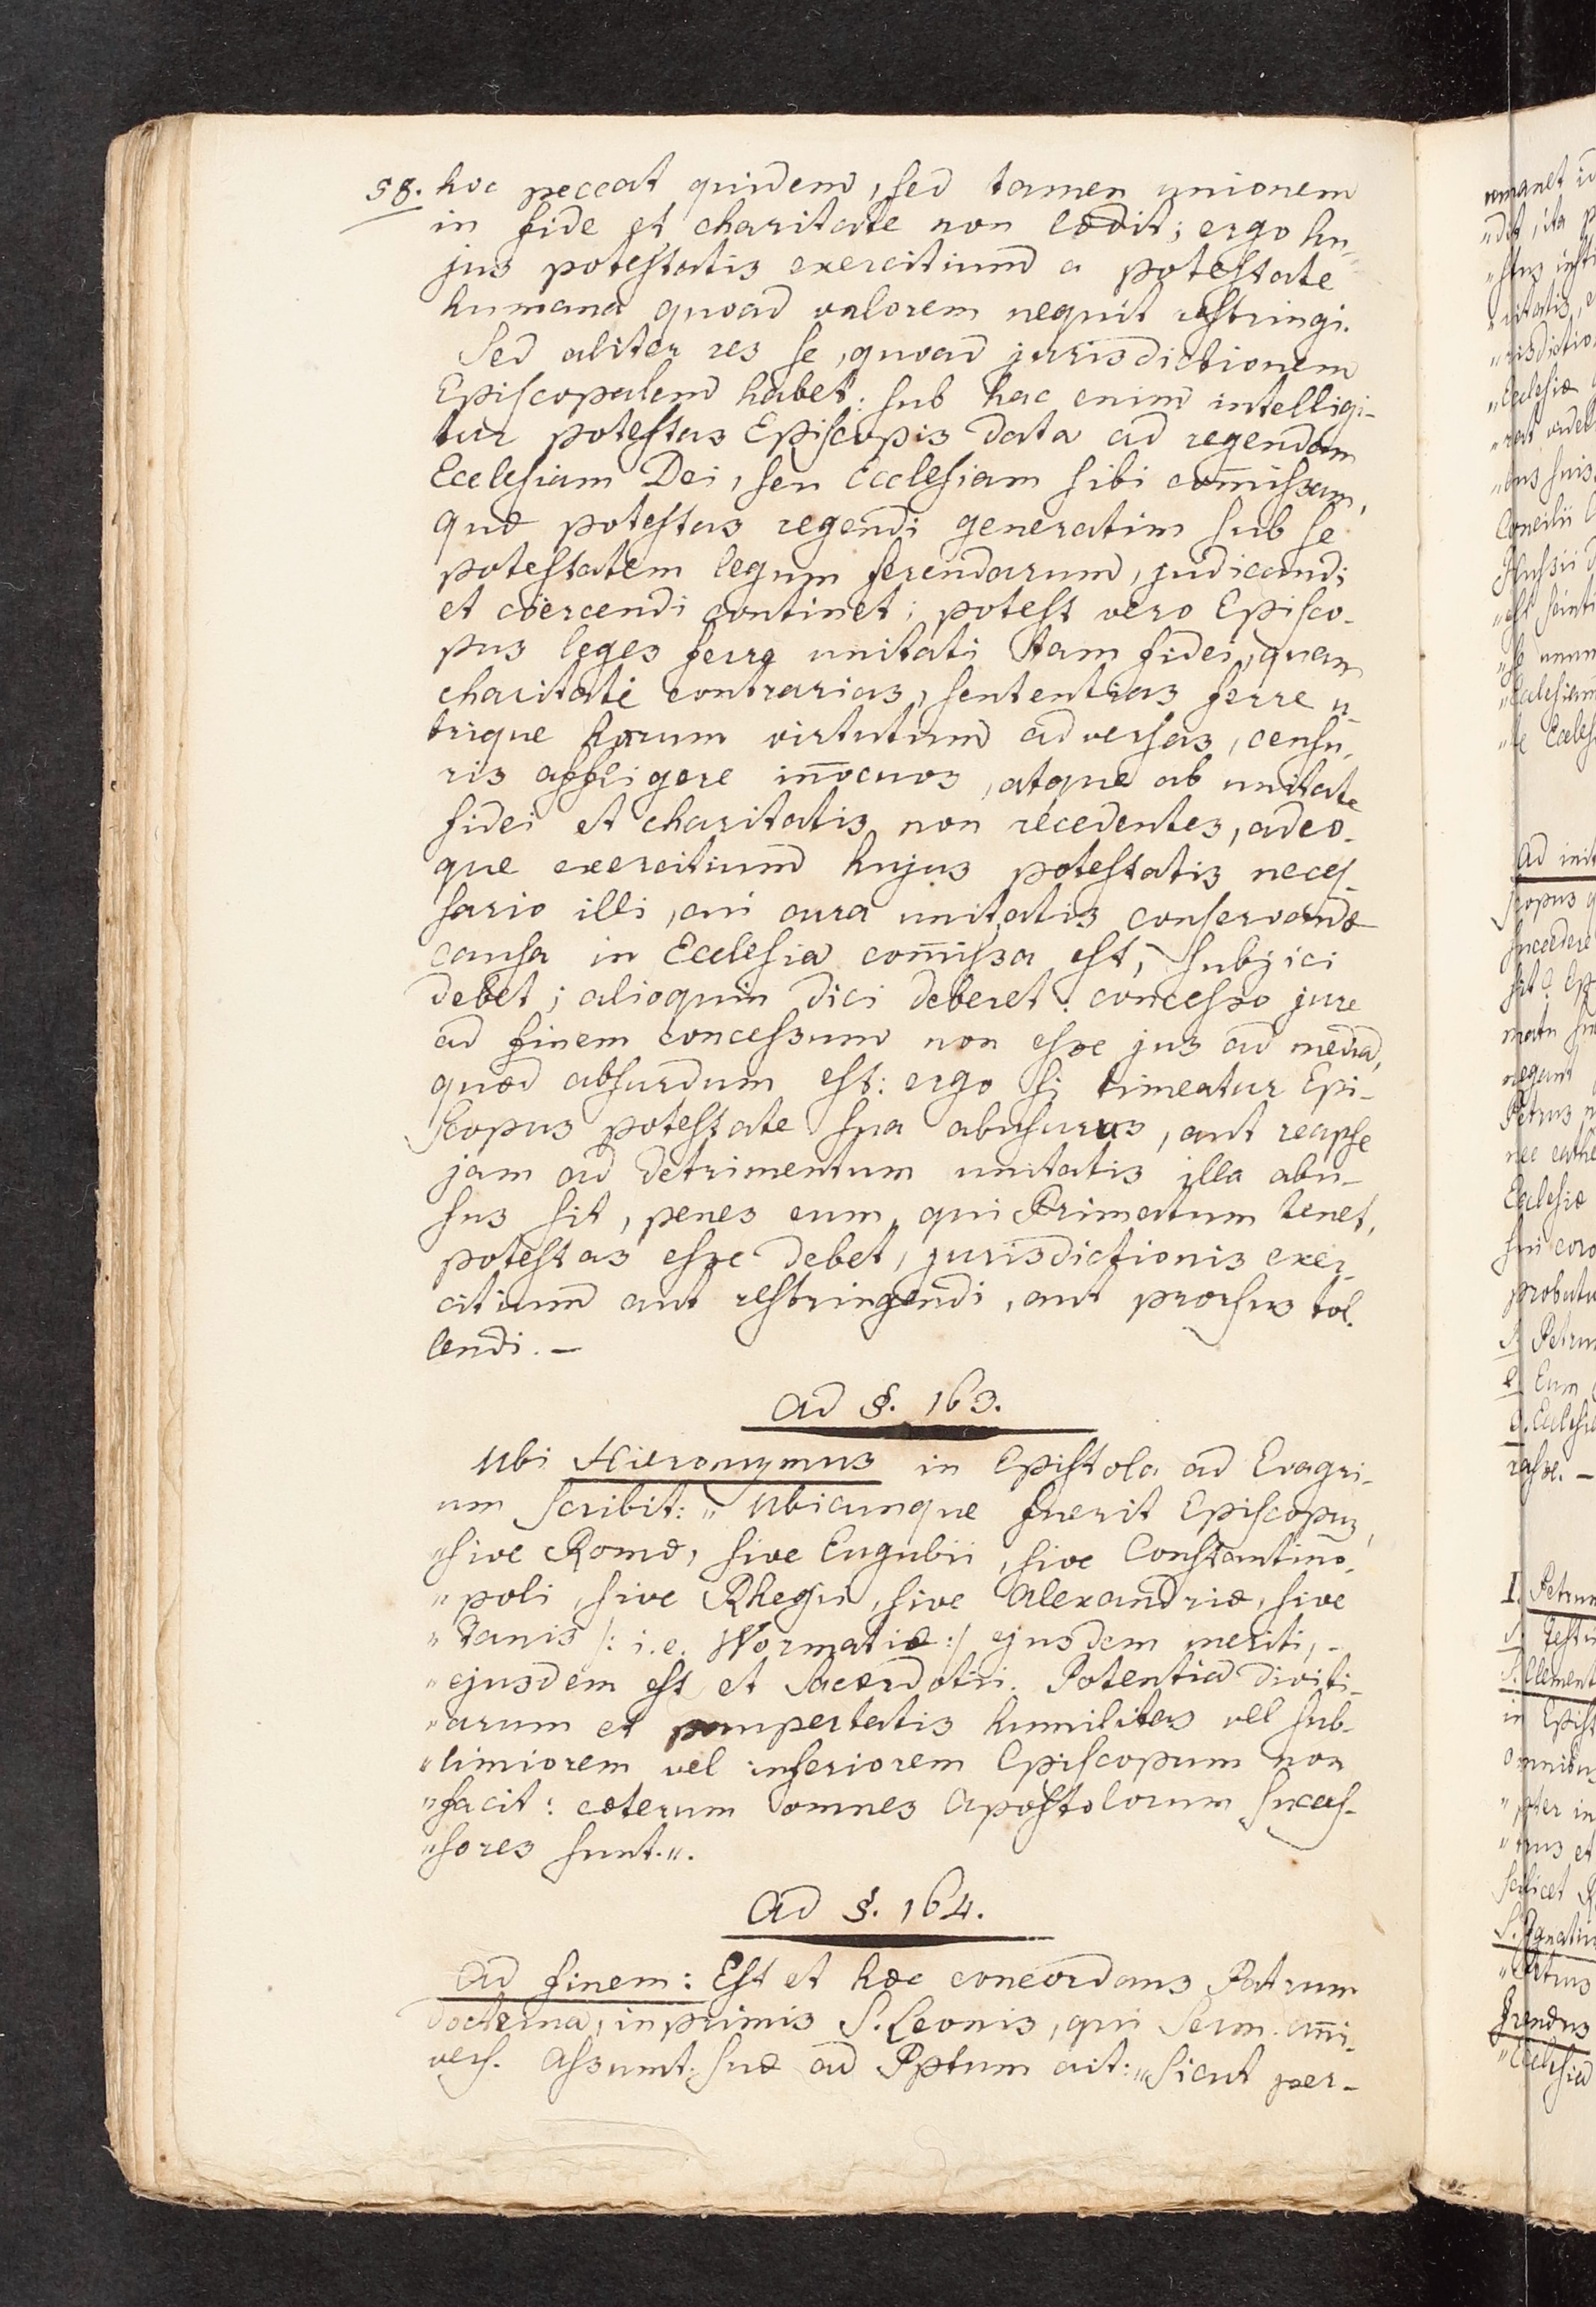 58. hoc peccat quidem, sed tamen unionem
in fide et charitate non lædit; ergo hu-
jus potestatis exercitium a potestate
humana quoad valorem nequit restringi.
Sed aliter res se, quoad jurisdictionem
Episcopalem habet: sub hac enim intelligi-
tur potestas Episcopis data ad regendam
Ecclesiam Dei, seu Ecclesiam sibi com̄issam,
quæ potestas regendi generatim sub se
potestatem legum ferendarum, judicandi
et coërcendi continet; potest vero Episco-
pus leges ferre unitati tam fidei, quam
charitati contrarias, sententias ferre u-
trique harum virtutum adversas, censu-
ris affligere in̄ocuos, atque ab unitate
fidei et charitatis non recedentes, adeo-
que exercitium hujus potestatis neces-
sario illi, cui cura unitatis conservandæ
causa in Ecclesia com̄issa est, subjici
debet; alioquin dici deberet: concesso jure
ad finem concessum non esse jus ad media,
quod absurdum est: ergo si timeatur Epi-
scopus potestate sua abusurus, aut reapse
jam ad detrimentum unitatis illa abu-
sus sit, penes eum, qui Primatum tenet,
potestas esse debet, jurisdictionis exer-
citium aut restringendi, aut prorsus tol-
lendi. —
Ad §. 163.
Ubi Hieronymus in Epistola ad Evagri-
um scribit: „ Ubicunque fuerit Episcopus,
„sive Romæ, sive Eugubii, sive Constantino-
„poli, sive Rhegii, sive Alexandriæ, sive
„Tanis /: i.e. Wormatiæ :/ ejusdem meriti, -
„ejusdem est et Sacerdotii. Potentia diviti-
„arum et paupertatis humilitas vel sub-
„limiorem vel inferiorem Episcopum non
„facit: cæterum omnes Apostolorum succes-
„sores sunt.„.
Ad §. 164.
Ad finem: Est et hæc concordans Patrum
doctrina, inprimis S. Leonis, qui Serm. an̄i-
vers. Assumt. suæ ad Pptum ait: „Sicut per-